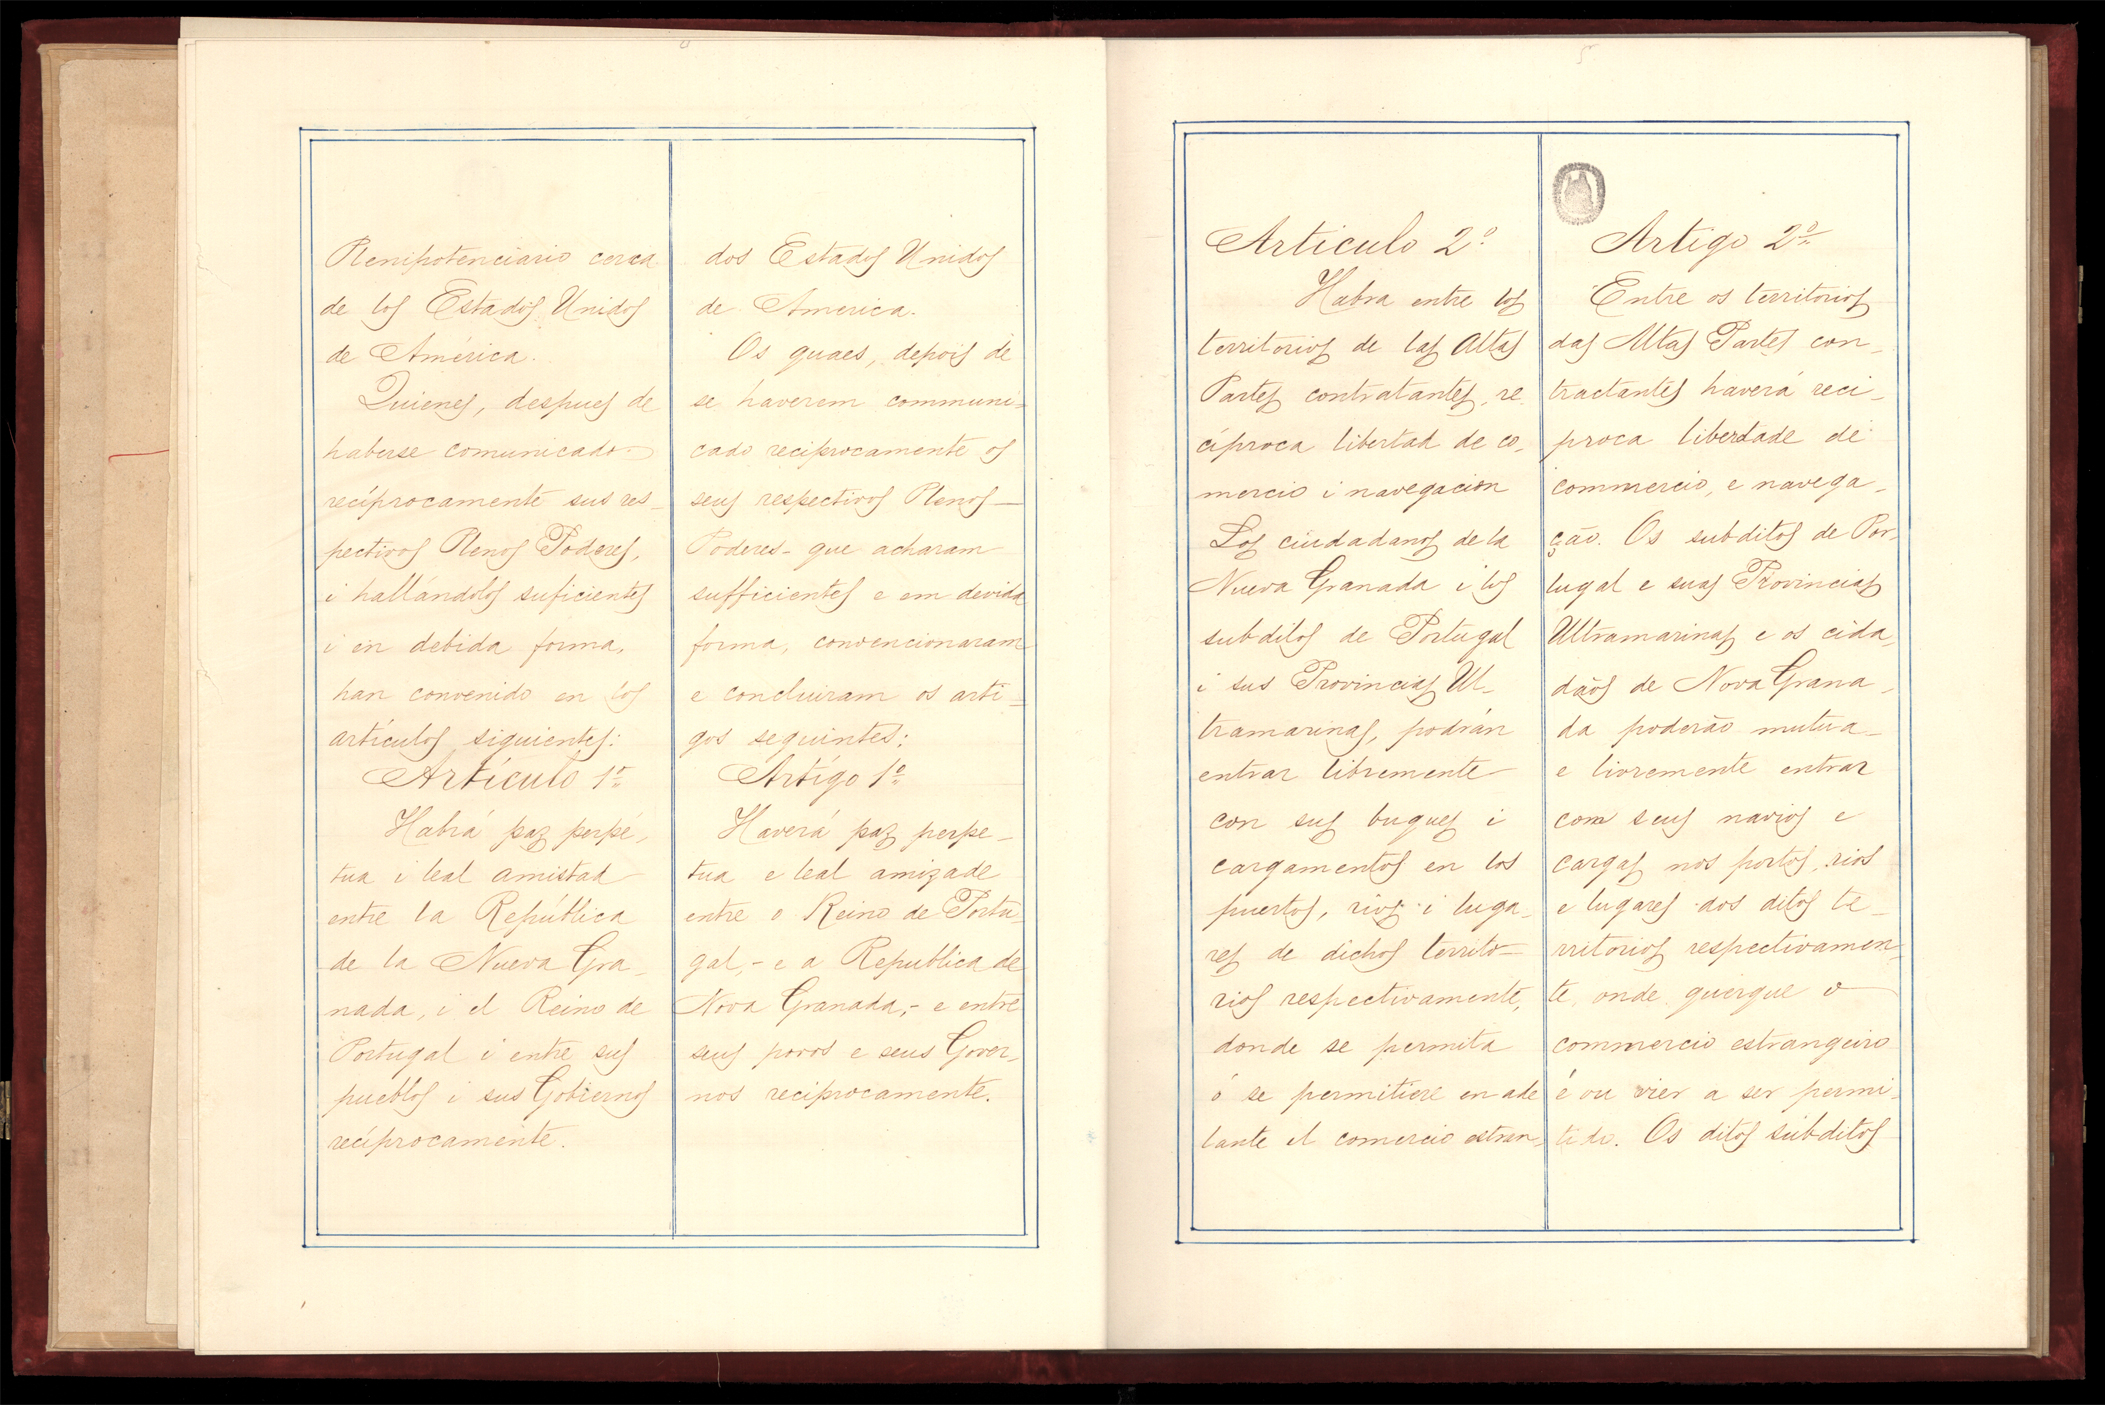 Plenipotenciario cerca
de los Estados Unidos
de América.
Quienes, despues de
haberse comunicado
recíprocamente sus res-
pectivos Plenos Poderes,
i hallándolos suficientes
i en debida forma,
han convenido en los
artículos siguientes:
Artículo 1º
Habrá paz perpé-
tua i leal amistad
entre la República
de la Nueva Gra-
nada, i el Reino de
Portugal i entre sus
pueblos i sus Gobiernos
recíprocamente.
dos Estados Unidos
de America.
Os quaes, depois de
se haverem communi=
cado reciprocamente os
seus respectivos Plenos
Poderes- que acharam
sufficientes e em devida
forma, convencionaram
e concluiram os arti=
gos seguintes:
Artigo 1º
Haverá paz perpe-
tua e leal amizade
entre o Reino de Portu-
gal,- e a Republica de
Nova Granada,- e entre
seus povos e seus Gover-
nos reciprocamente.
5
Articulo 2º
Habra entre los
territorios de las Altas
Partes contratantes, re-
cíproca libertad de co-
mercio i navegacion
Los ciudadanos de la
Nueva Granada i los
subditos de Portugal
i sus Provincias Ul-
tramarinas, podrán
entrar libremente
con sus buques i
cargamentos en los
puertos, rios i luga-
res de dichos territo-
rios respectivamente,
donde se permita
ó se permitiere en ade
lante el comercio estran-
Artigo 2º
Entre os territorios
das Altas Partes con-
tractantes haverá reci-
proca liberdade de
commercio, e navega-
ção. Os subditos de Por-
tugal e suas Provincias
Ultramarinas e os cida-
dãos de Nova Grana-
da poderão mutua-
e livremente entrar
com seus navios e
cargas nos portos, rios
e lugares dos ditos te-
rritorios respectivamen-
te, onde querque o
commercio estrangeiro
é ou vier a ser permi-
tido. Os ditos subditos